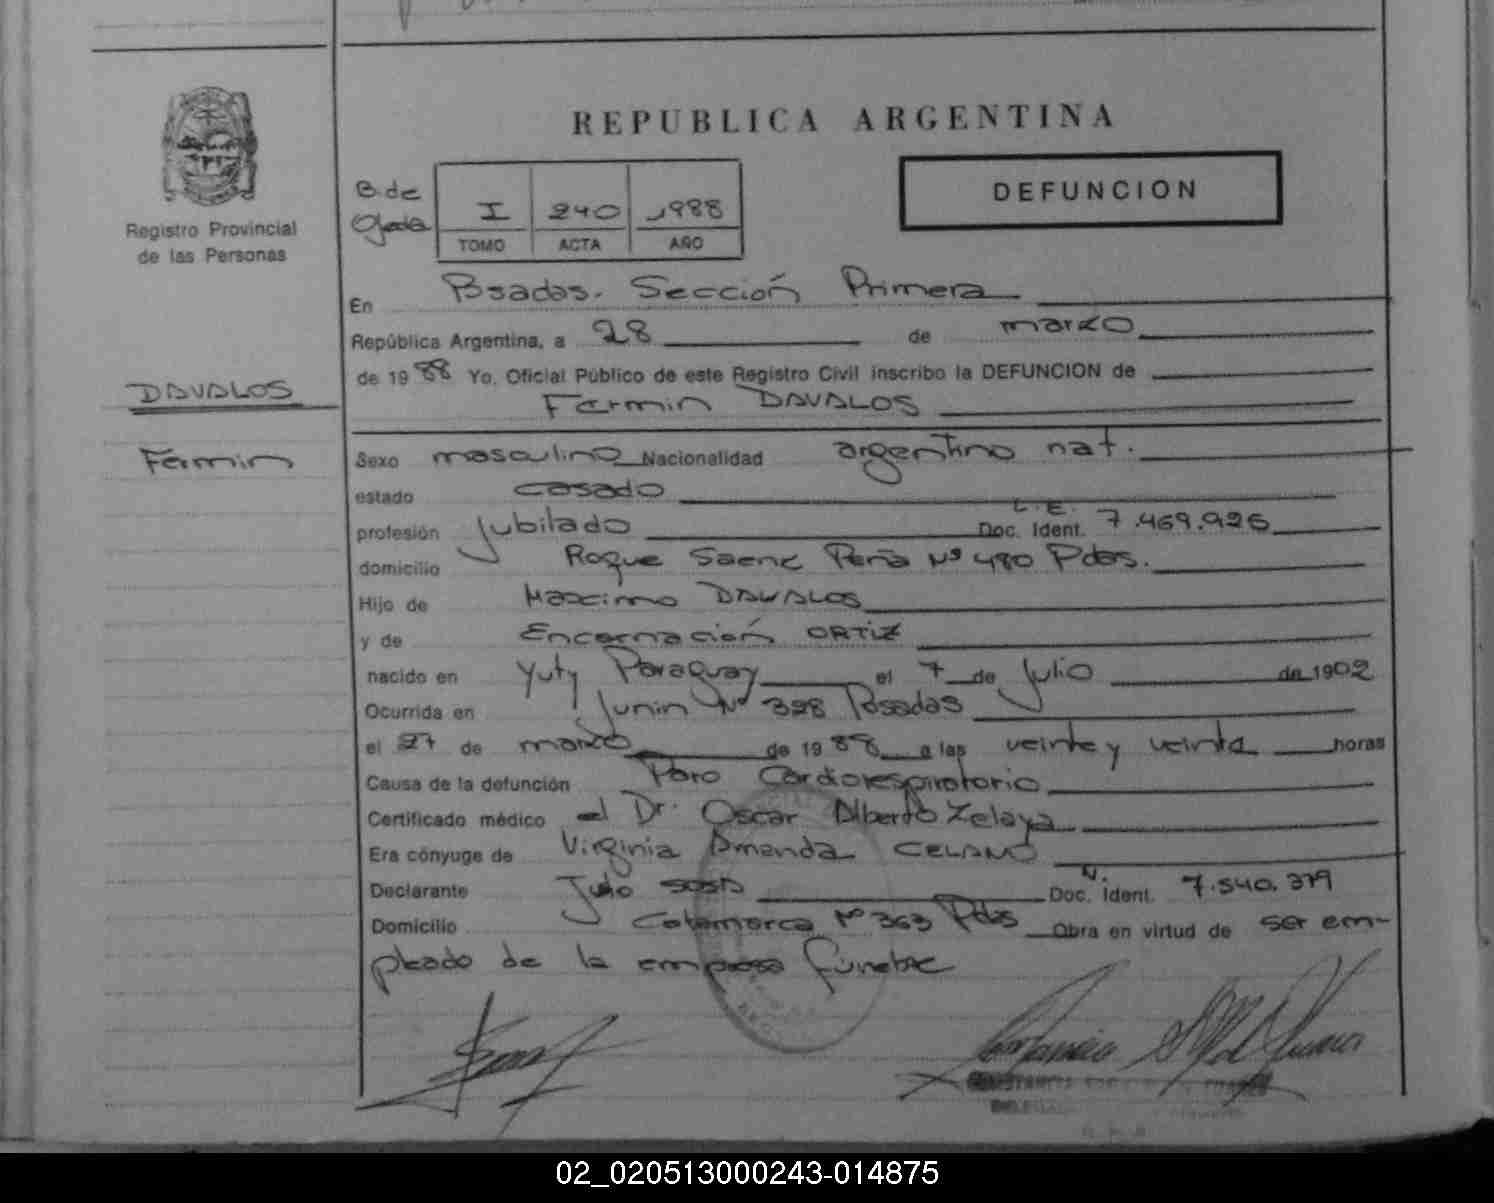 REPUBLICA ARGENTINA
Registro Provincial
de las Personas
B. de
Ojeda
I 240 1988
TOMO ACTA AÑO
DEFUNCION
En Posadas. Sección Primera
República Argentina, a 28 de marzo
de 1988 Yo, Oficial Público de este Registro Civil inscribo la DEFUNCION de
Fermin DAVALOS
DAVALOS
Fermin
Sexo masculino Nacionalidad argentino nat.
estado casado
profesión jubilado Doc. Ident. L.E. 7.469.926
domicilio Roque Saenz Peña Nº 480 Pdas.
Hijo de Maximo DAVALOS
y de Encarnación ORTIZ
nacido en Yuty Paraguay el 7 de Julio de 1902
Ocurrida en Junin Nº 328 Posadas
el 27 de marzo de 1988 a las veinte y veinte horas
Causa de la defunción Paro Cardiorespiratorio
Certificado médico el Dr. Oscar Alberto Zelaya
Era cónyuge de Virginia Amanda CELANO
Declarante Julio SOSA Doc. Ident. N. 7.540.379
Domicilio Catamarca Nº 363 Pdas Obra en virtud de ser em-
pleado de la empresa fúnebre
02_020513000243-014875